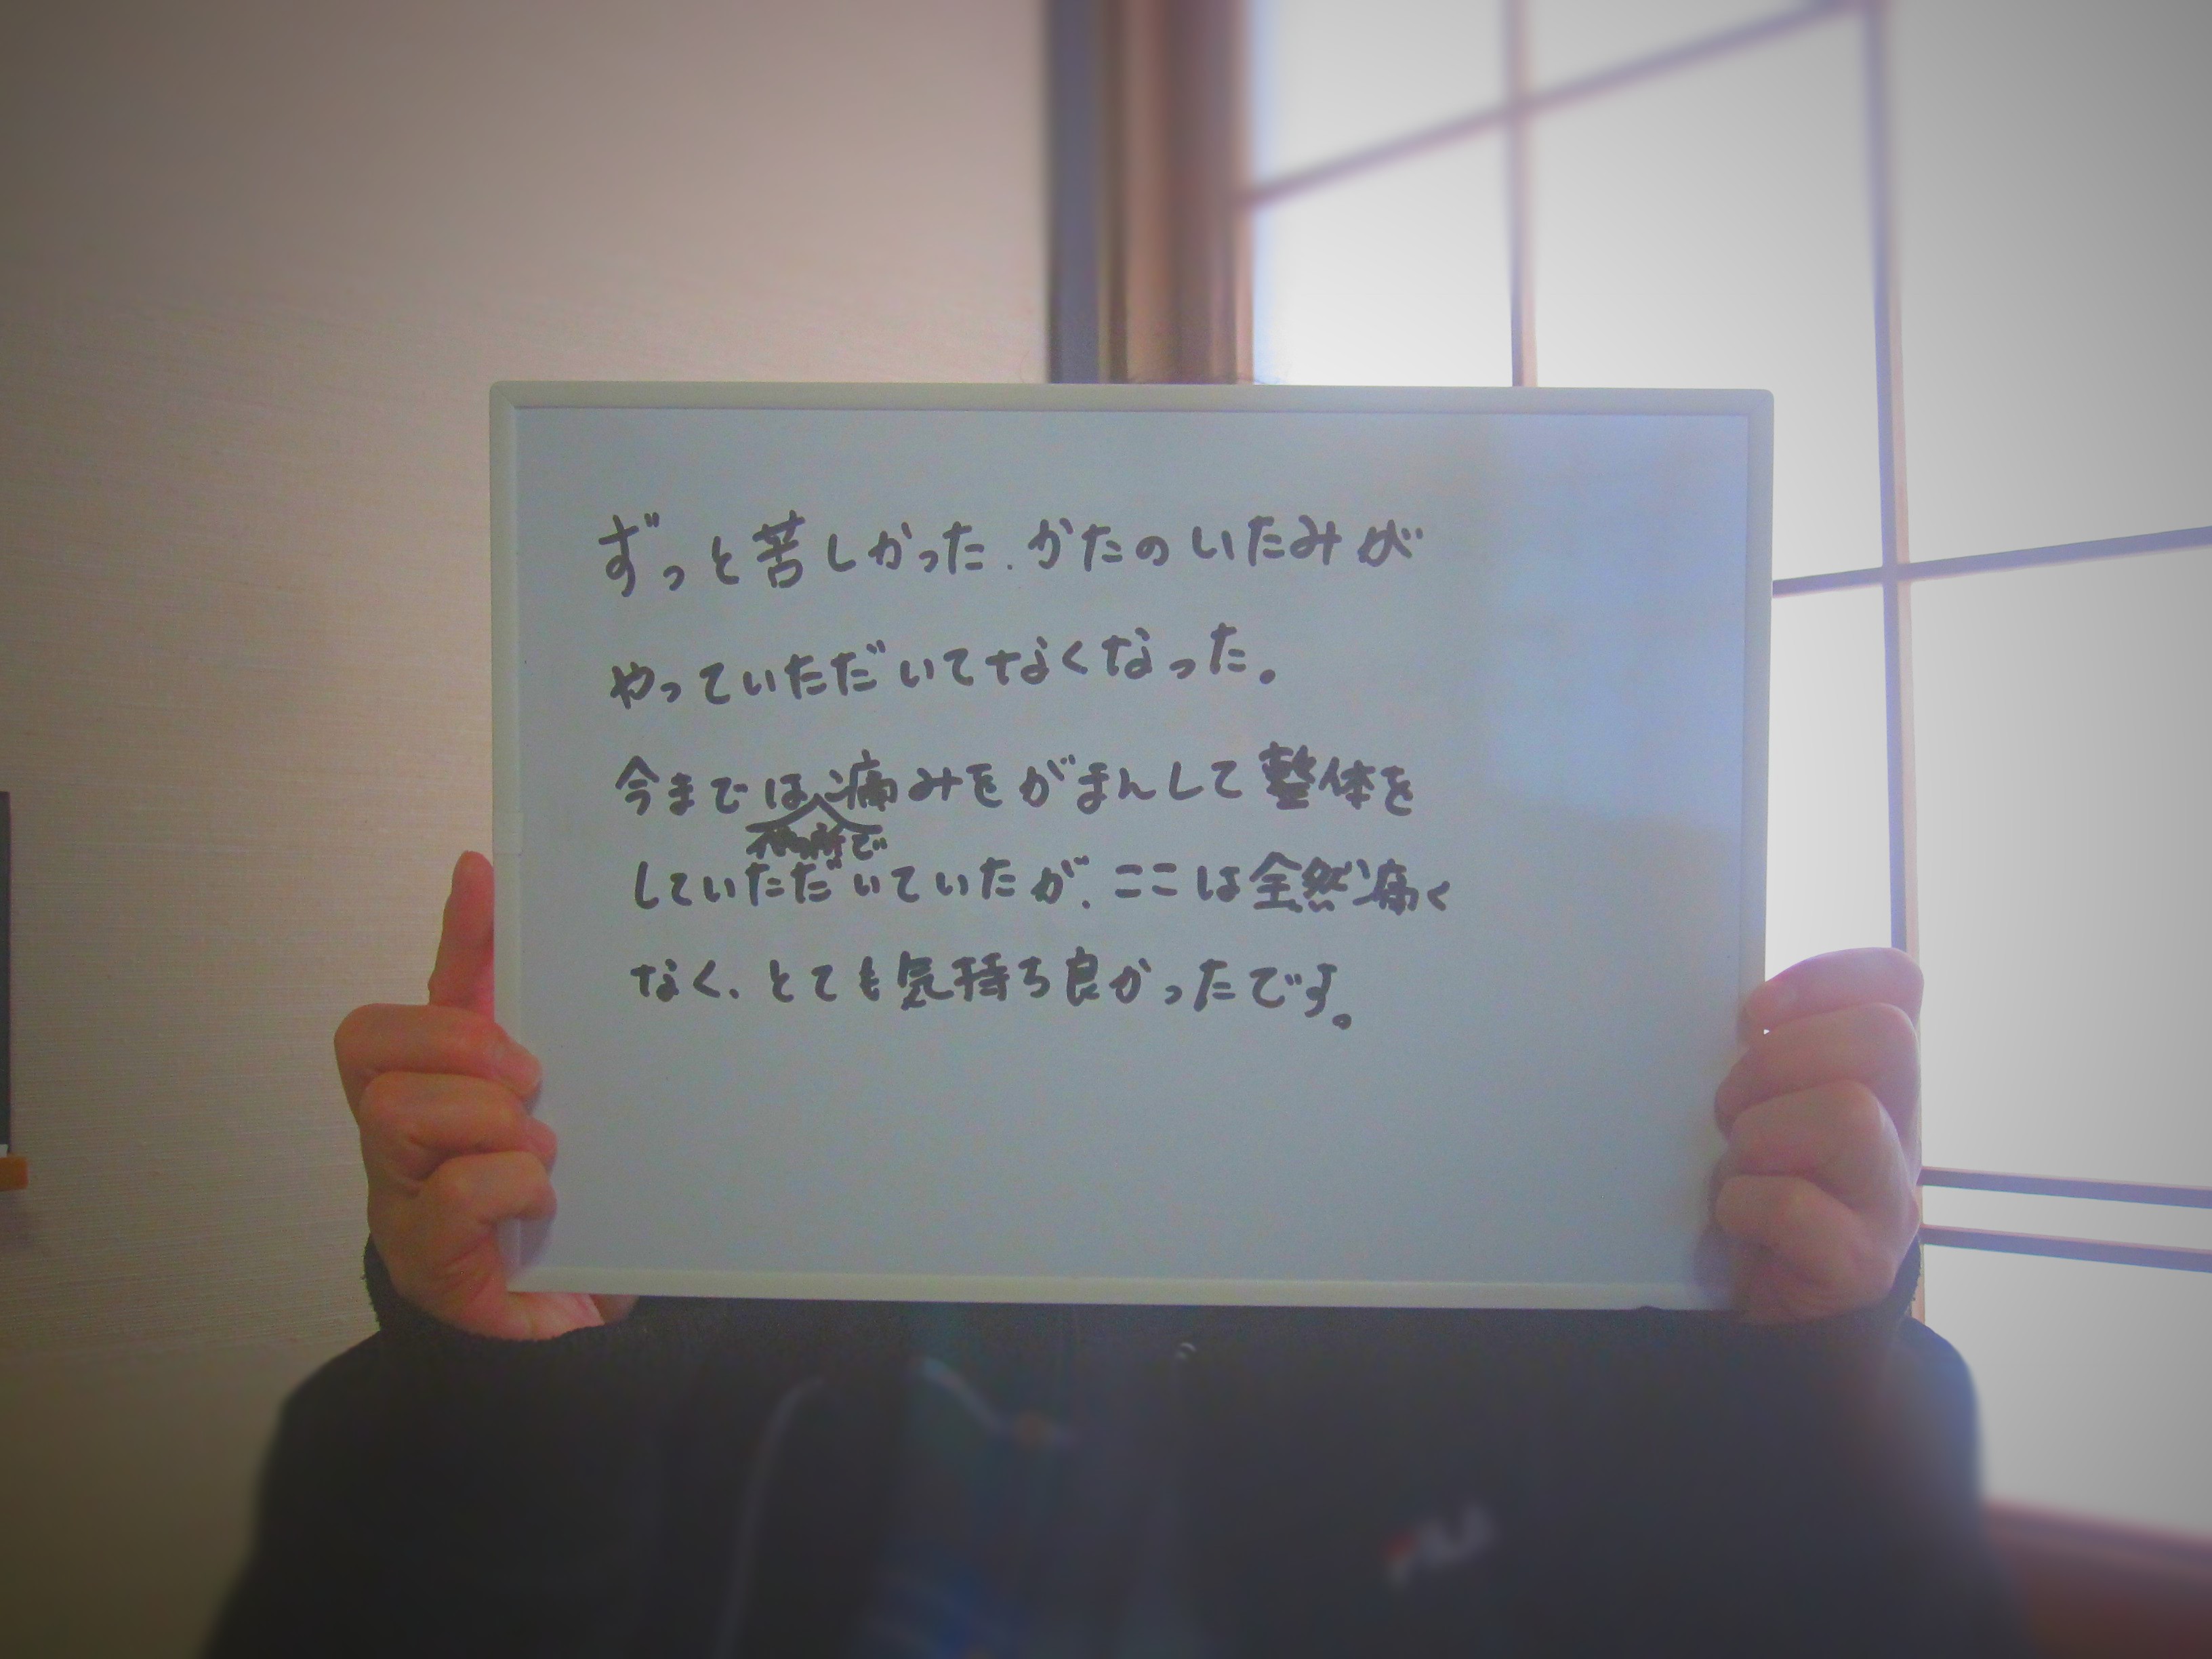 ずっと苦しかった.かたのいたみが
やっていただいてなくなった。
今までは痛みをがまんして整体を
していただいていたが、ここは全然痛く
なく、とても気持ち良かったです。